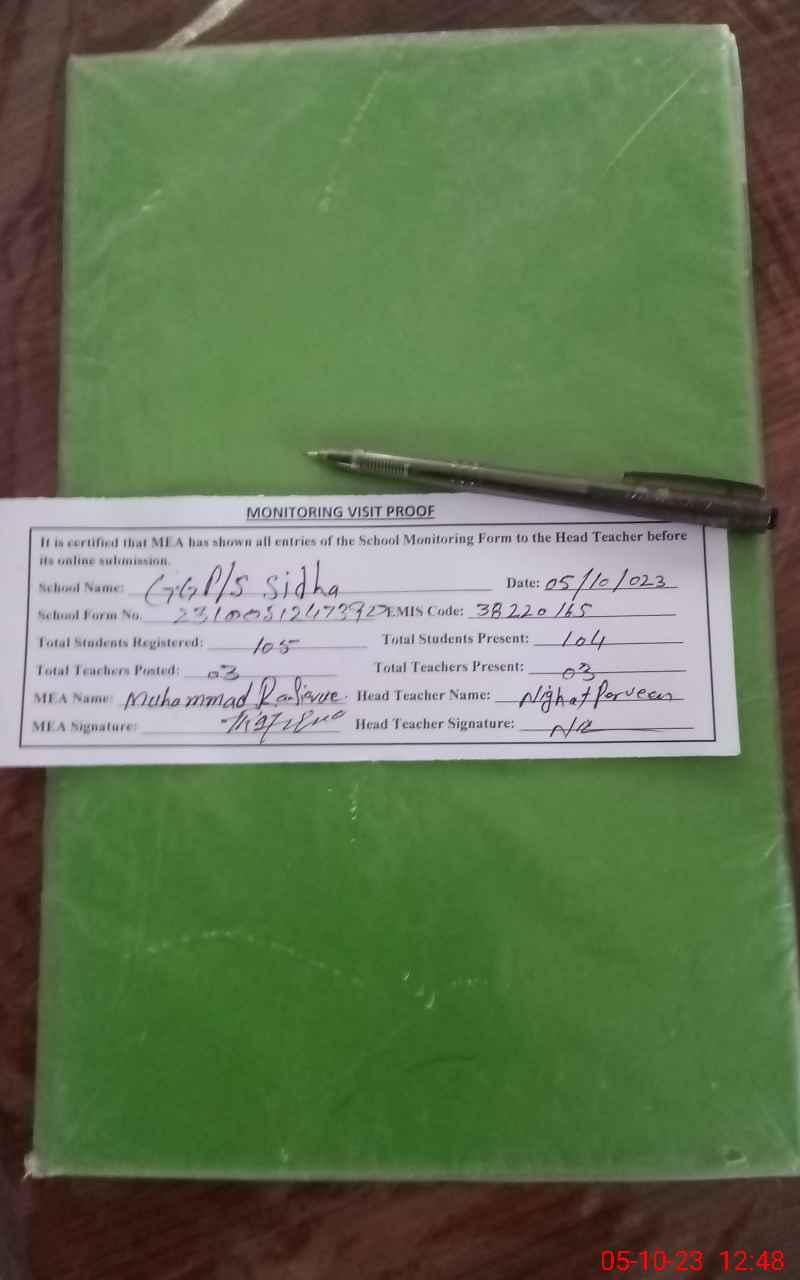 MONITORING VISIT PROOF
It is certified that MEA has shown all entries of the School Monitoring Form to the Head Teacher before
its online submission.
School Name: GGP/S Sidha Date: 05/10/023
School Form No. EMIS Code: 38220165
Total Students Registered: 105 Total Students Present: 104
Total Teachers Posted: 03 Total Teachers Present: 03
MEA Name: Muhammad Head Teacher Name: Nighat Parveen
MEA Signature: Head Teacher Signature:
05-10-23 12:48